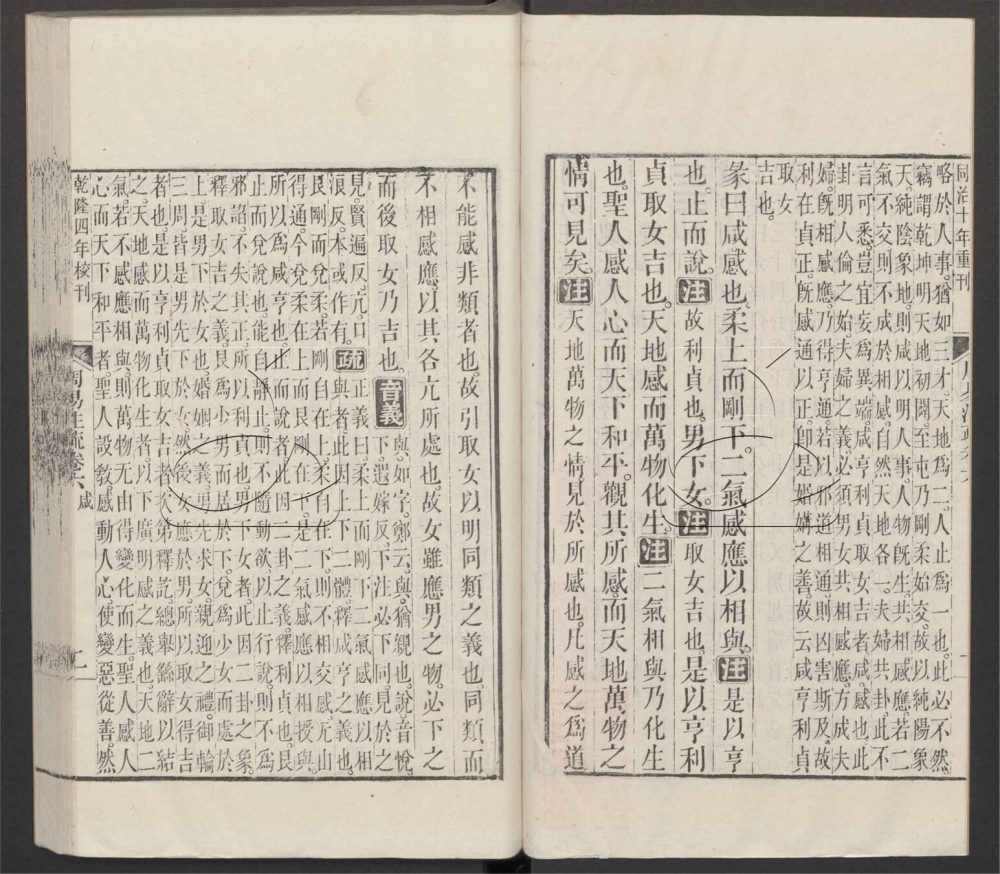 同治十年重刊
略於人事。猶如三才天地爲二人止爲一也。此必不然。
竊謂乾坤明天地初闢。至屯乃剛柔始交。故以純陽象
天。純陰象地。則咸以明人事。人物旣生。共相感應。若二
氣不交。則不成於相感。自然天地各一。夫婦共卦。此不
言可悉。豈宜妄爲異端。咸亨利貞取女吉者。咸感也。此
卦明人倫之始。夫婦之義。必須男女共相感應。方成夫
婦。旣相感應。乃得亨通。若以邪道相通。則凶害斯及。故
利在貞正。旣感通以正。卽是婚媾之善。故云咸亨利貞
取女
吉也。
彖曰咸感也。柔上而剛下。二氣感應以相與。注是以亨
也。止而說。注故利貞也。男下女。注取女吉也。是以亨利
貞取女吉也。天地感而萬物化生。注二氣相與乃化生
也。聖人感人心而天下和平。觀其所感。而天地萬物之
情可見矣。注天地萬物之情。見於所感也。凡感之爲道
不能感非類者也。故引取女以明同類之義也。同類而
不相感應。以其各亢所處也。故女雖應男之物。必下之
而後取女乃吉也。音義與。如字。鄭云。與。猶親也。說。音悅。
下。遐嫁反。下注必下同。見於之
見。賢遍反。亢。口
浪反。本或作有。疏正義曰。柔上而剛下。二氣感應以相
與者。此因上下二體釋咸亨之義也。
艮剛而兌柔。若剛自在上。柔自在下。則不相交感。无由
得通。今兌柔在上而艮剛在下。是二氣感應以相授與。
所以爲咸亨也。止而說者。此因二卦之義釋利貞也。艮
止而兌說也。能自靜止則不隨動欲。以止行說。則不爲
邪諂。不失其正。所以利貞也。男下女者。此因二卦之象
釋取女吉之義。艮爲少男而居於下。兌爲少女而處於
上。是男下於女也。婚姻之義。男先求女。親迎之禮。御輪
三周。皆是男先下於女。然後女應於男。所以取女得吉
者也。是以亨利貞取女吉者。次第釋訖。總舉繇辭以結
之。天地感而萬物化生者。以下廣明感之義也。天地二
氣。若不感應相與。則萬物无由得變化而生。聖人感人
心而天下和平者。聖人設敎。感動人心。使變惡從善。然
乾隆四年校刊
周易注疏卷六 咸